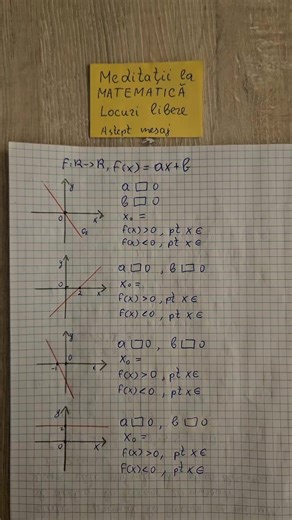 Meditații la
MATEMATICĂ
Locuri libere
Aștept mesaj
f:R→R, f(x) = ax+b
y
0
x
Gf
a □ 0
b □ 0
x₀ =
f(x)>0, pt x∈
f(x)<0, pt x∈
y
0
2
x
a □ 0, b □ 0
x₀ =
f(x)>0, pt x∈
f(x)<0, pt x∈
y
-1
0
x
a □ 0, b □ 0
x₀ =
f(x)>0, pt x∈
f(x)<0, pt x∈
y
0
x
a □ 0, b □ 0
x₀ =
f(x)>0, pt x∈
f(x)<0, pt x∈